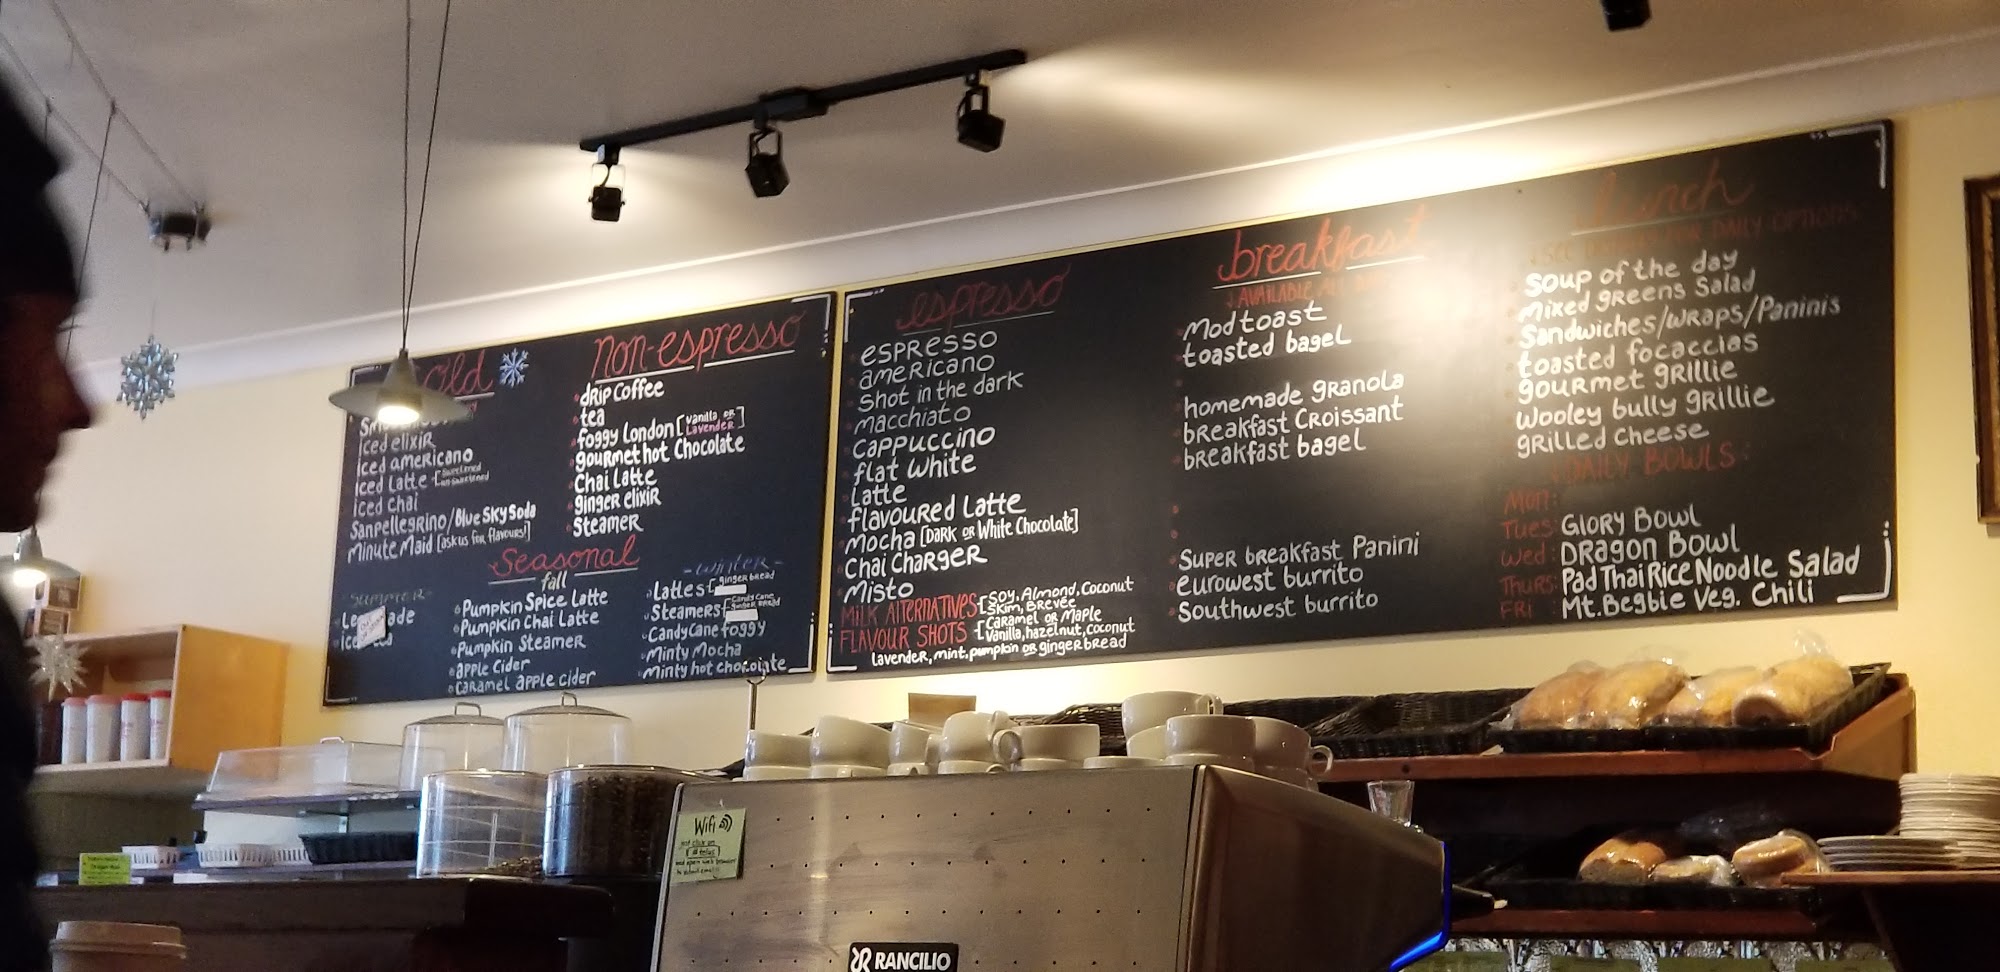 cold
Iced elixir
Iced americano
Iced Latte [sweetened
unsweetened
Iced chai
Sanpellegrino/Blue Sky Soda
Minute Maid [ask us for flavours!]
non-espresso
drip coffee
tea
foggy London [vanilla or
Lavender]
gourmet hot Chocolate
Chai Latte
ginger elixir
Steamer
Seasonal
fall
Pumpkin Spice Latte
Pumpkin Chai Latte
Pumpkin Steamer
apple cider
caramel apple cider
summer
-winter-
Lattes [gingerbread
Steamers [Candy Cane
gingerbread
Candy Cane foggy
Minty Mocha
Minty hot chocolate
espresso
espresso
americano
Shot in the dark
macchiato
cappuccino
flat white
Latte
flavoured Latte
Mocha [Dark or White Chocolate]
Chai Charger
Misto
Milk Alternatives [Soy, Almond, Coconut
Skim, Brevée
Flavour Shots [Caramel or Maple
Vanilla, hazelnut, coconut
lavender, mint, pumpkin or gingerbread
breakfast
Available All
Mod toast
toasted bagel
homemade granola
breakfast Croissant
breakfast bagel
Super breakfast Panini
eurowest burrito
Southwest burrito
lunch
for daily options
Soup of the day
mixed greens Salad
Sandwiches/wraps/Paninis
toasted focaccias
gourmet grillie
Wooley bully grillie
grilled cheese
Daily Bowls:
Mon:
Tues: Glory Bowl
Wed: Dragon Bowl
Thurs: Pad Thai Rice Noodle Salad
Fri: Mt. Begbie Veg. Chili
Wifi
RANCILIO